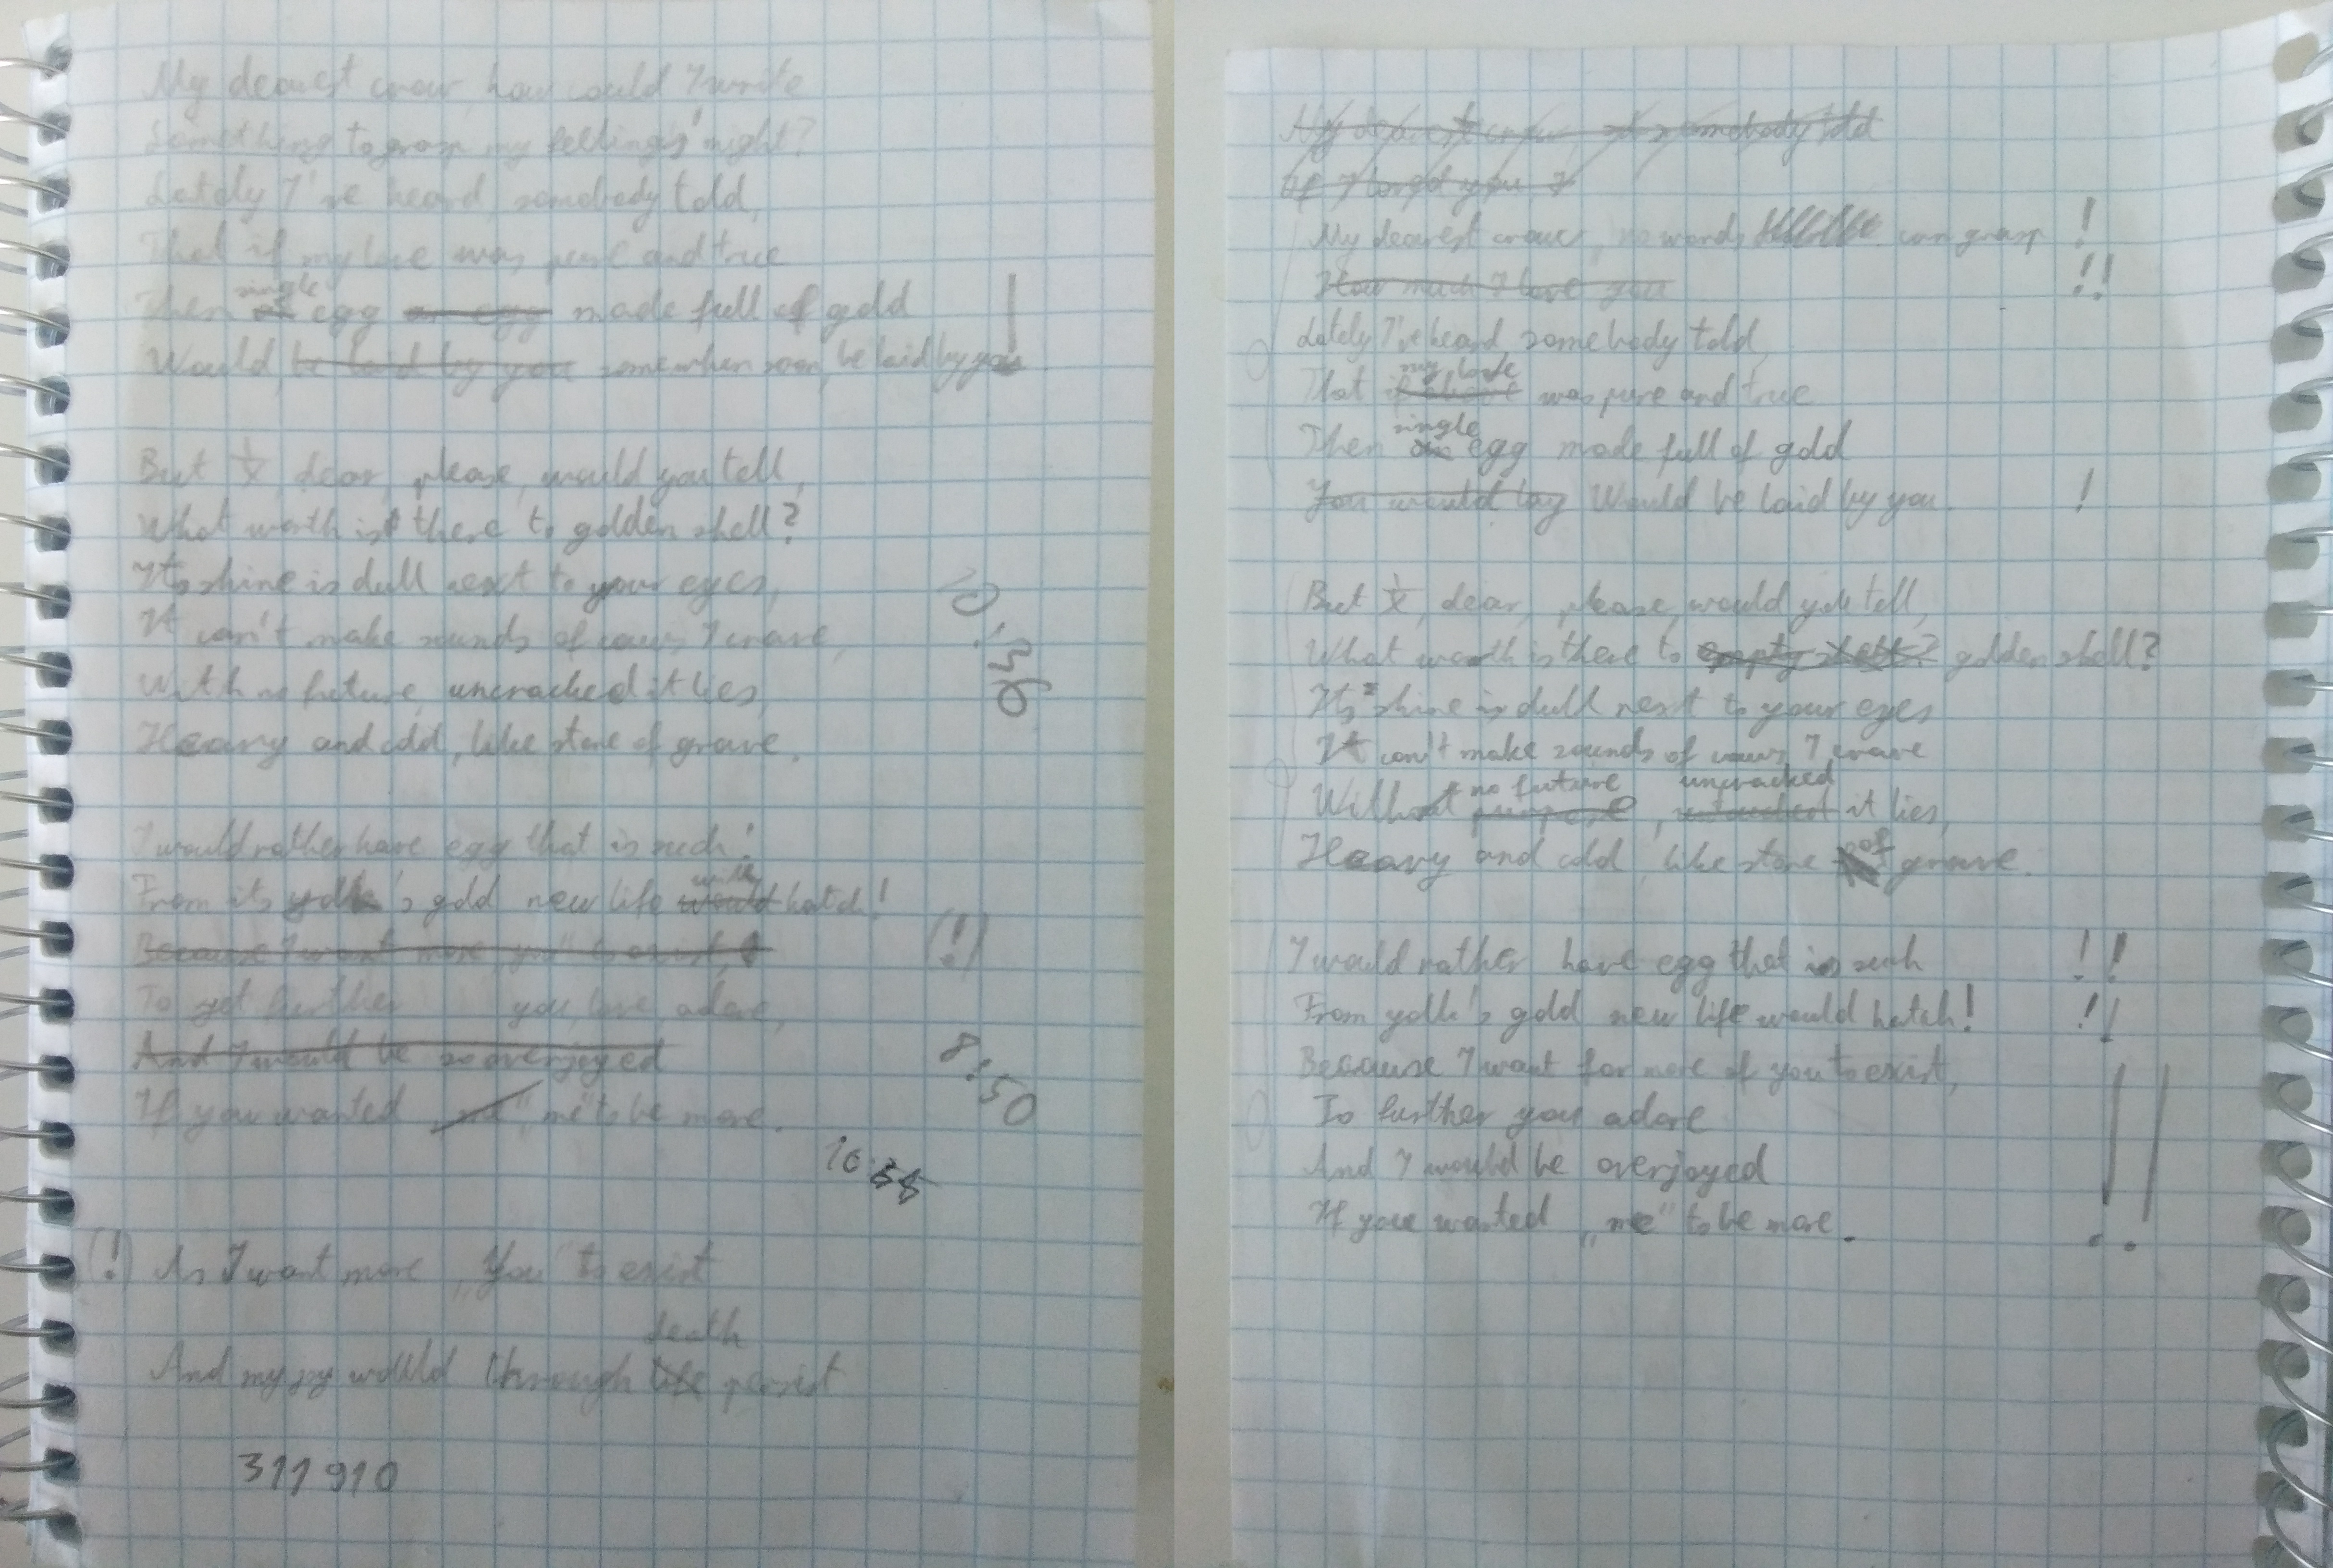 My dearest crow, how could I write
Something to grasp my feelings' might?
Lately I've heard, somebody told,
That if my love was pure and true
single
Then an egg an egg made full of gold
Would, be laid by you somewhen soon, be laid by you
But dear, please, would you tell,
What worth is there to golden shell?
Its shine is dull next to your eyes,
It can't make sounds of caws I crave,
With no future, uncracked it lies,
Heavy and cold, like stone of grave.
20:36
I would rather have egg that is such:
will
From its yolk's gold new life would hatch!
Because I want more "you" to exist,
(!)
To yet further you, love, adore,
And I would be so overjoyed
8:50
If you wanted "me" to be more.
16:
(!) As I want more „You" to exist
death
And my joy would through life persist
311910
My dearest crow, somebody told
If I loved you, I
My dearest crow, no words can grasp !
How much I love you !!
Lately I've heard somebody told,
my love
That if was pure and true
single
Then an egg made full of gold
You would lay Would be laid by you. !
But dear, please, would you tell,
What worth is there to empty shell? golden shell?
Its shine is dull next to your eyes
It can't make sounds of caws I crave
no future uncracked
Without purpose, untouched it lies,
of
Heavy and cold, like stone grave.
I would rather have egg that is such !!
From yolk's gold new life would hatch! !!
Because I want for more of you to exist,
To further you adore
And I would be overjoyed
If you wanted „me" to be more. !!